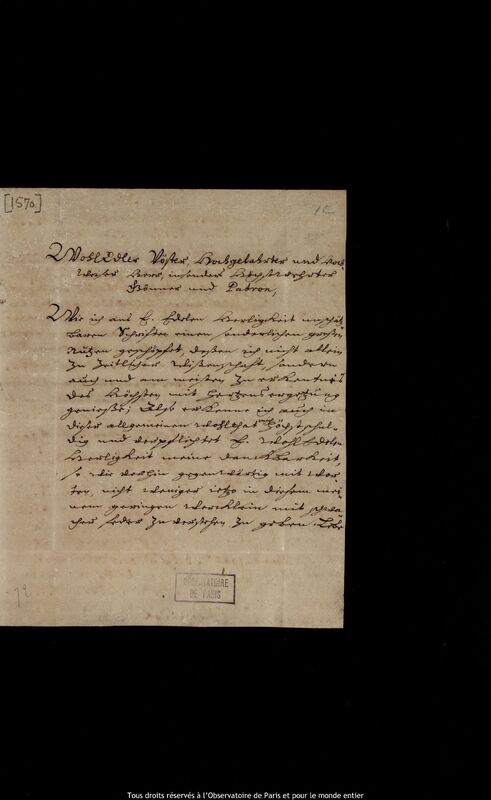 [1570]
WohlEdler Vester, Hochgelahrter und Hoch
Weiser Herr, insonders HöchstGeehrter
Gönner und Patron,
Wie ich aus E. Edelen Herligkeit unschätz
baren Schriften einen sonderlichen großen
Nutzen geschöpfet, deßen ich nicht allein
Zu Zeitlicher Wißenschaft, sondern
auch und am meisten Zu erkentnis
des Höchsten mit Hertzens ergetzung
genieße; Also erkenne ich auch in
dieser allgemeinen wohlthat mich Höchstschul-
dig und verpflichtet E. WohlEdelen
Herligkeit meine danckbarkeit,
so wie vorhin gegenwertig mit Wor
ten, nicht weniger jetzo in diesem mei
nem geringen Wercklein mit schwa
cher feder Zu verstehen Zu geben.
OBSERVATOIRE
DE PARIS
Tous droits réservés à l'Observatoire de Paris et pour le monde entier